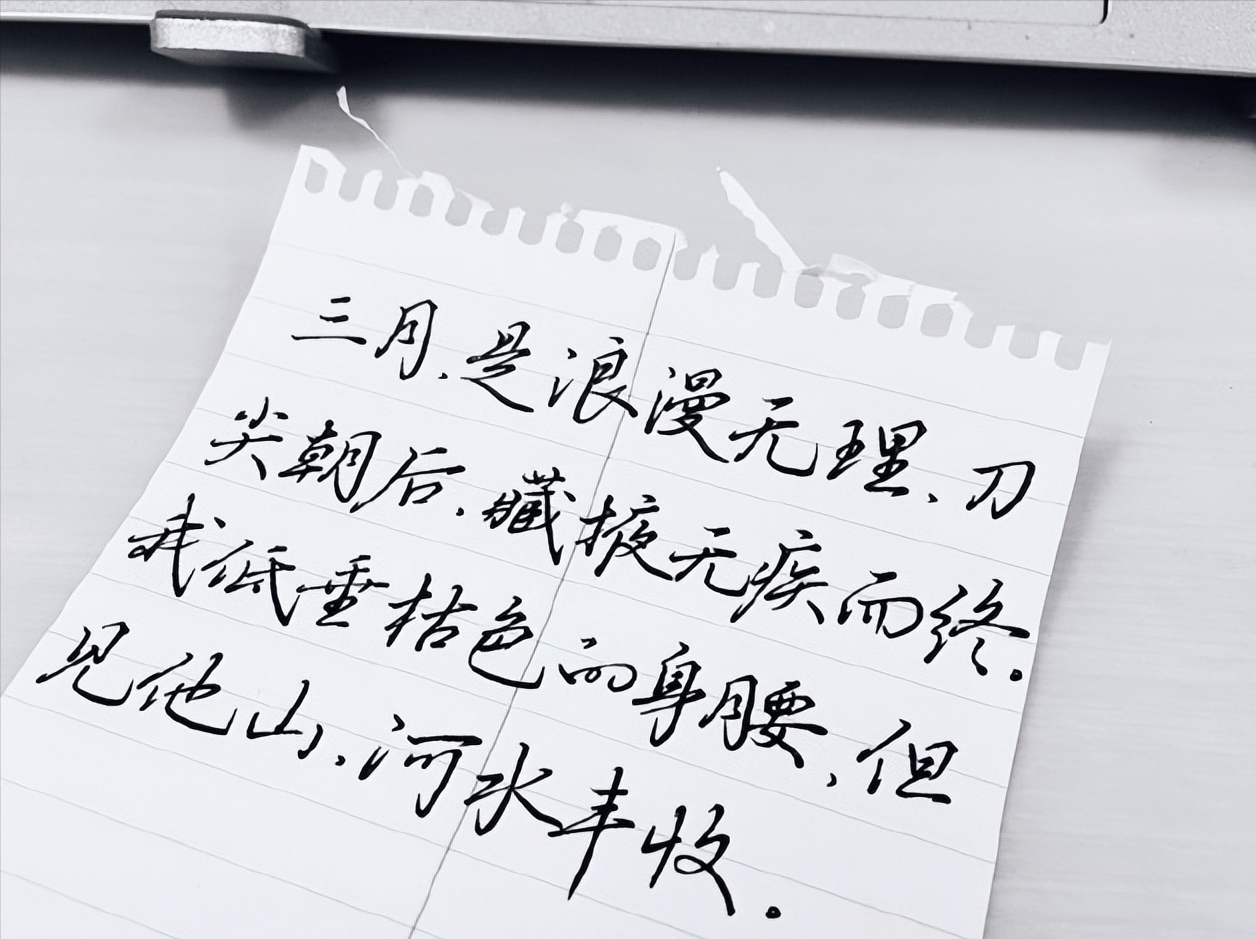 三月、是浪漫无理、刀
尖朝后、藏掖无疾而终.
我低垂枯色的身腰、但
见他山、河水丰收.